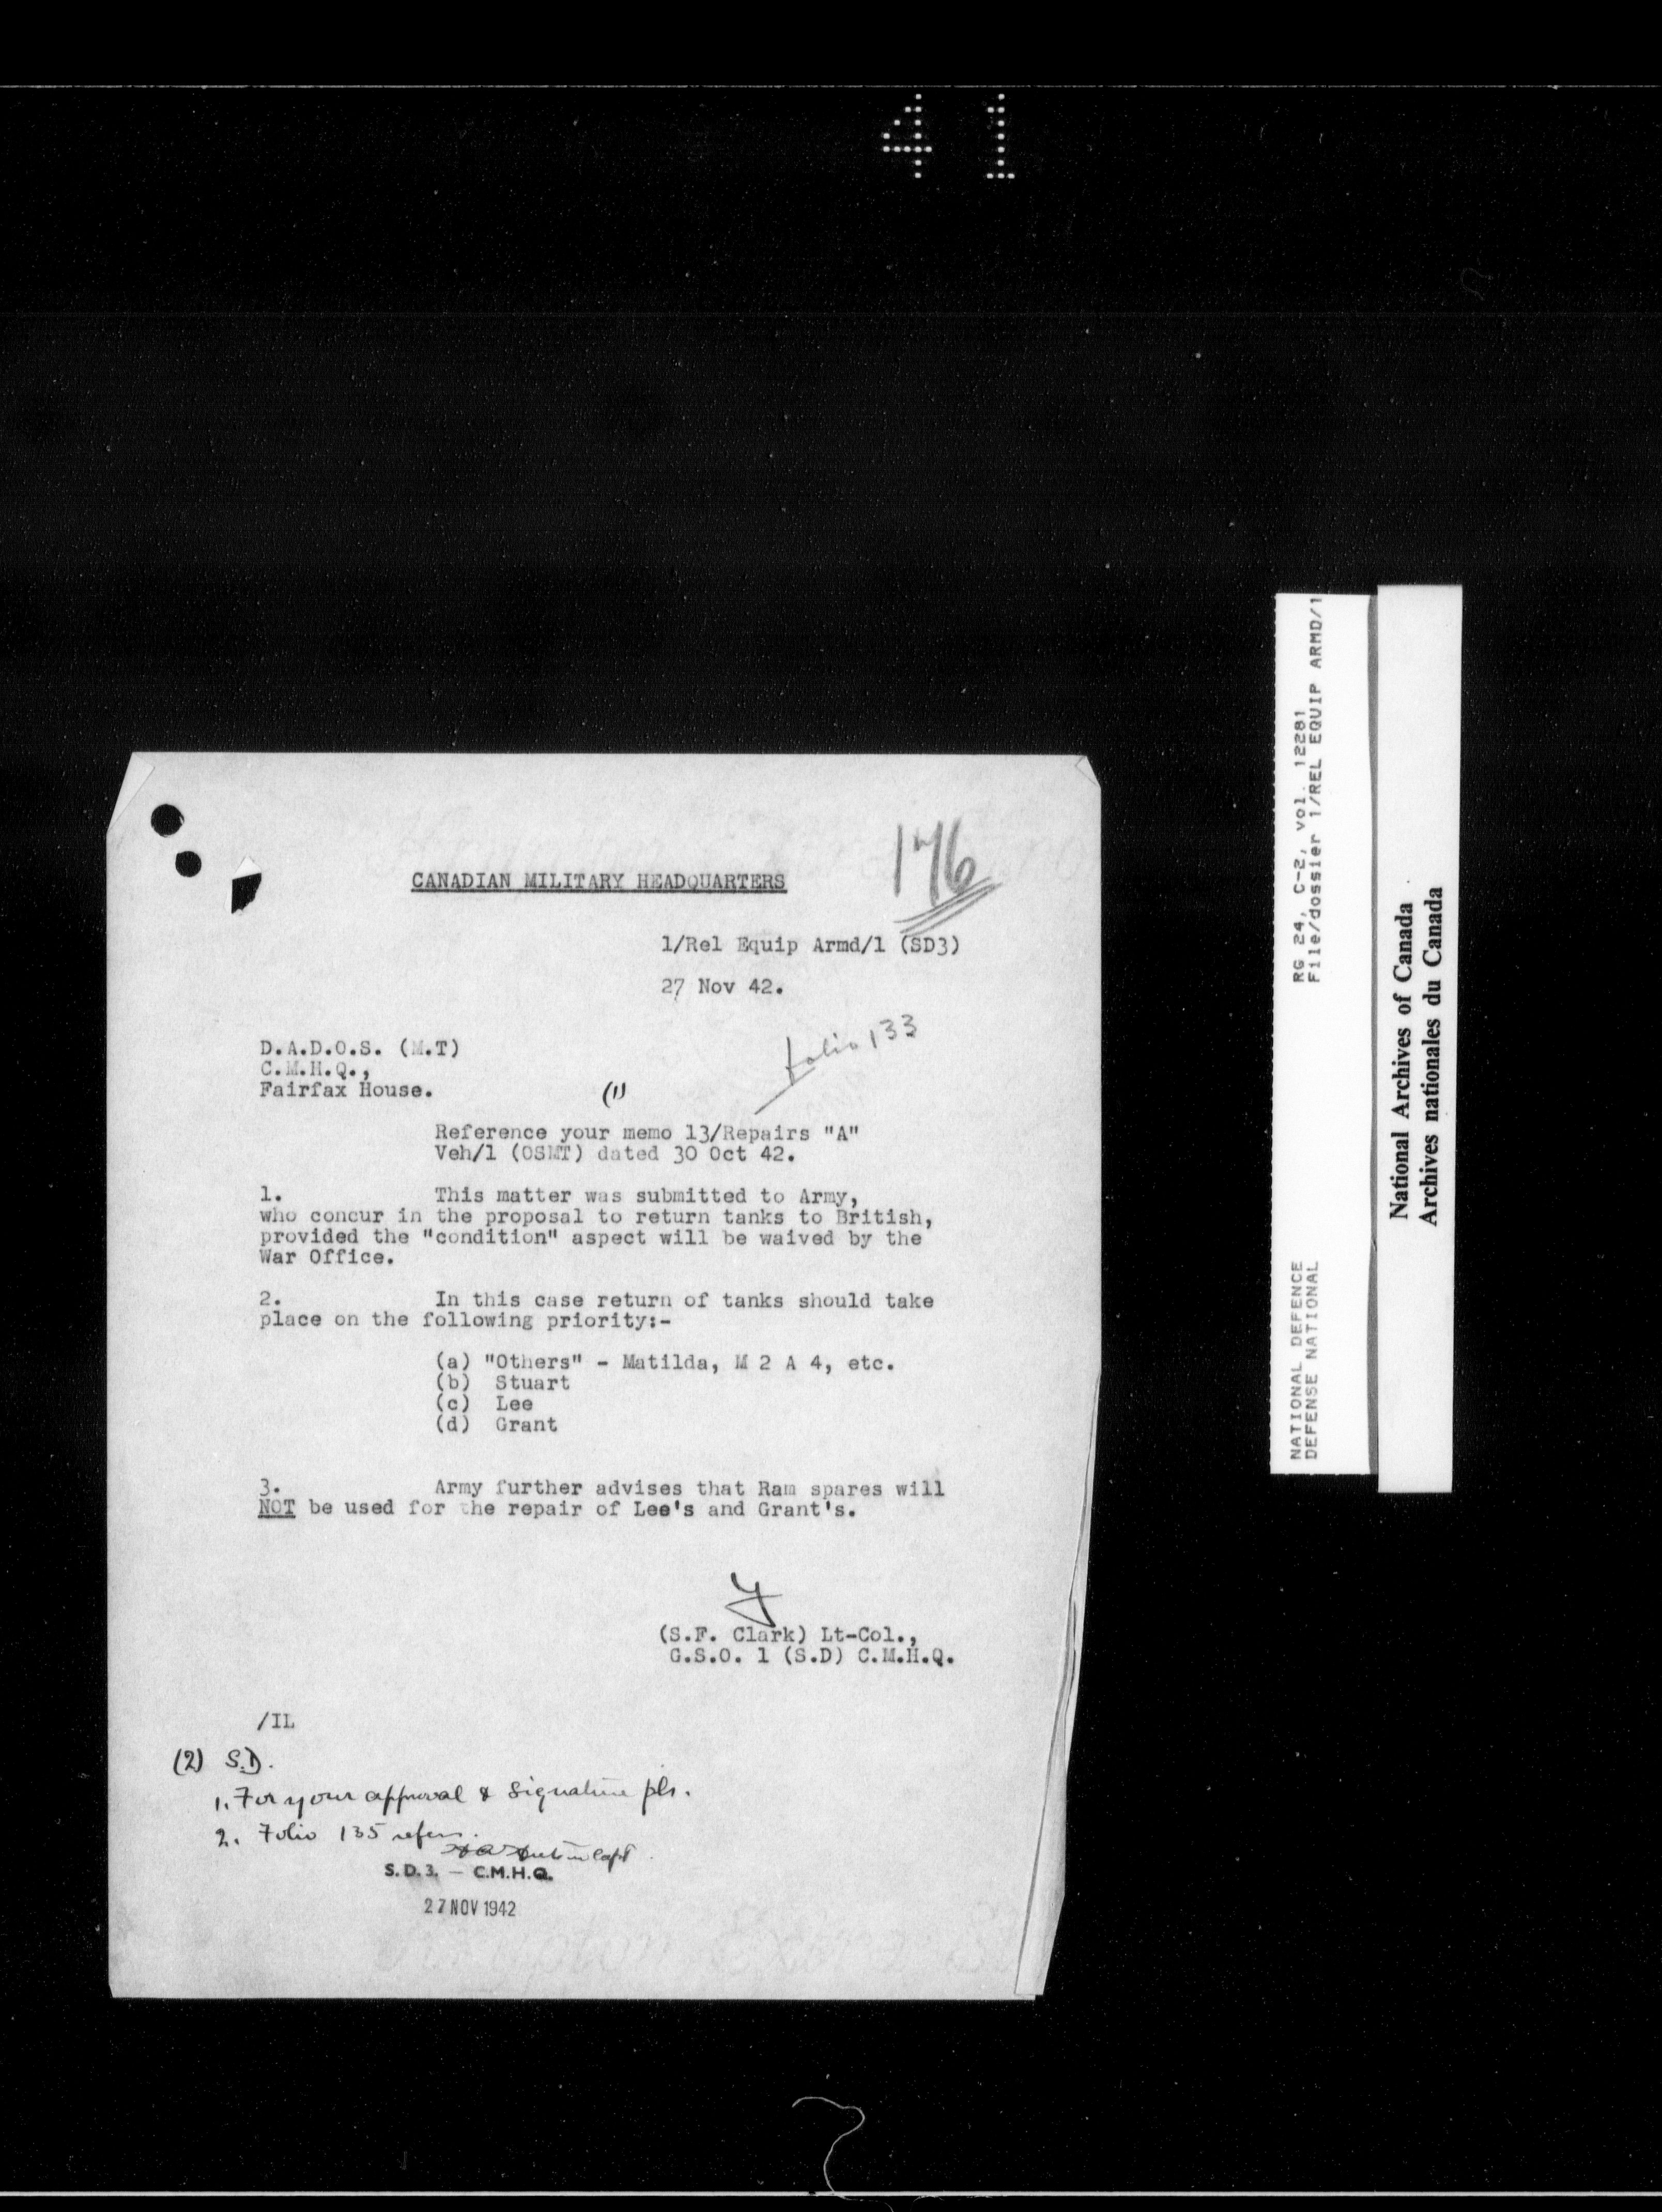 41
176
CANADIAN MILITARY HEADQUARTERS
1/Rel Equip Armd/1 (SD3)
27 Nov 42.
folio 133
D.A.D.O.S. (M.T)
C.M.H.Q.,
Fairfax House.
(1)
Reference your memo 13/Repairs "A"
Veh/1 (OSMT) dated 30 Oct 42.
1. This matter was submitted to Army,
who concur in the proposal to return tanks to British,
provided the "condition" aspect will be waived by the
War Office.
2. In this case return of tanks should take
place on the following priority:-
(a) "Others" - Matilda, M 2 A 4, etc.
(b) Stuart
(c) Lee
(d) Grant
3. Army further advises that Ram spares will
NOT be used for the repair of Lee's and Grant's.
(S.F. Clark) Lt-Col.,
G.S.O. 1 (S.D) C.M.H.Q.
/IL
(2) S.D.
1. For your approval & Signature pls.
2. Folio 135 refers.
Capt
S.D.3. — C.M.H.Q.
27 NOV 1942
RG 24, C-2, vol. 12281
File/dossier 1/REL EQUIP ARMD/1
NATIONAL DEFENCE
DEFENSE NATIONAL
National Archives of Canada
Archives nationales du Canada